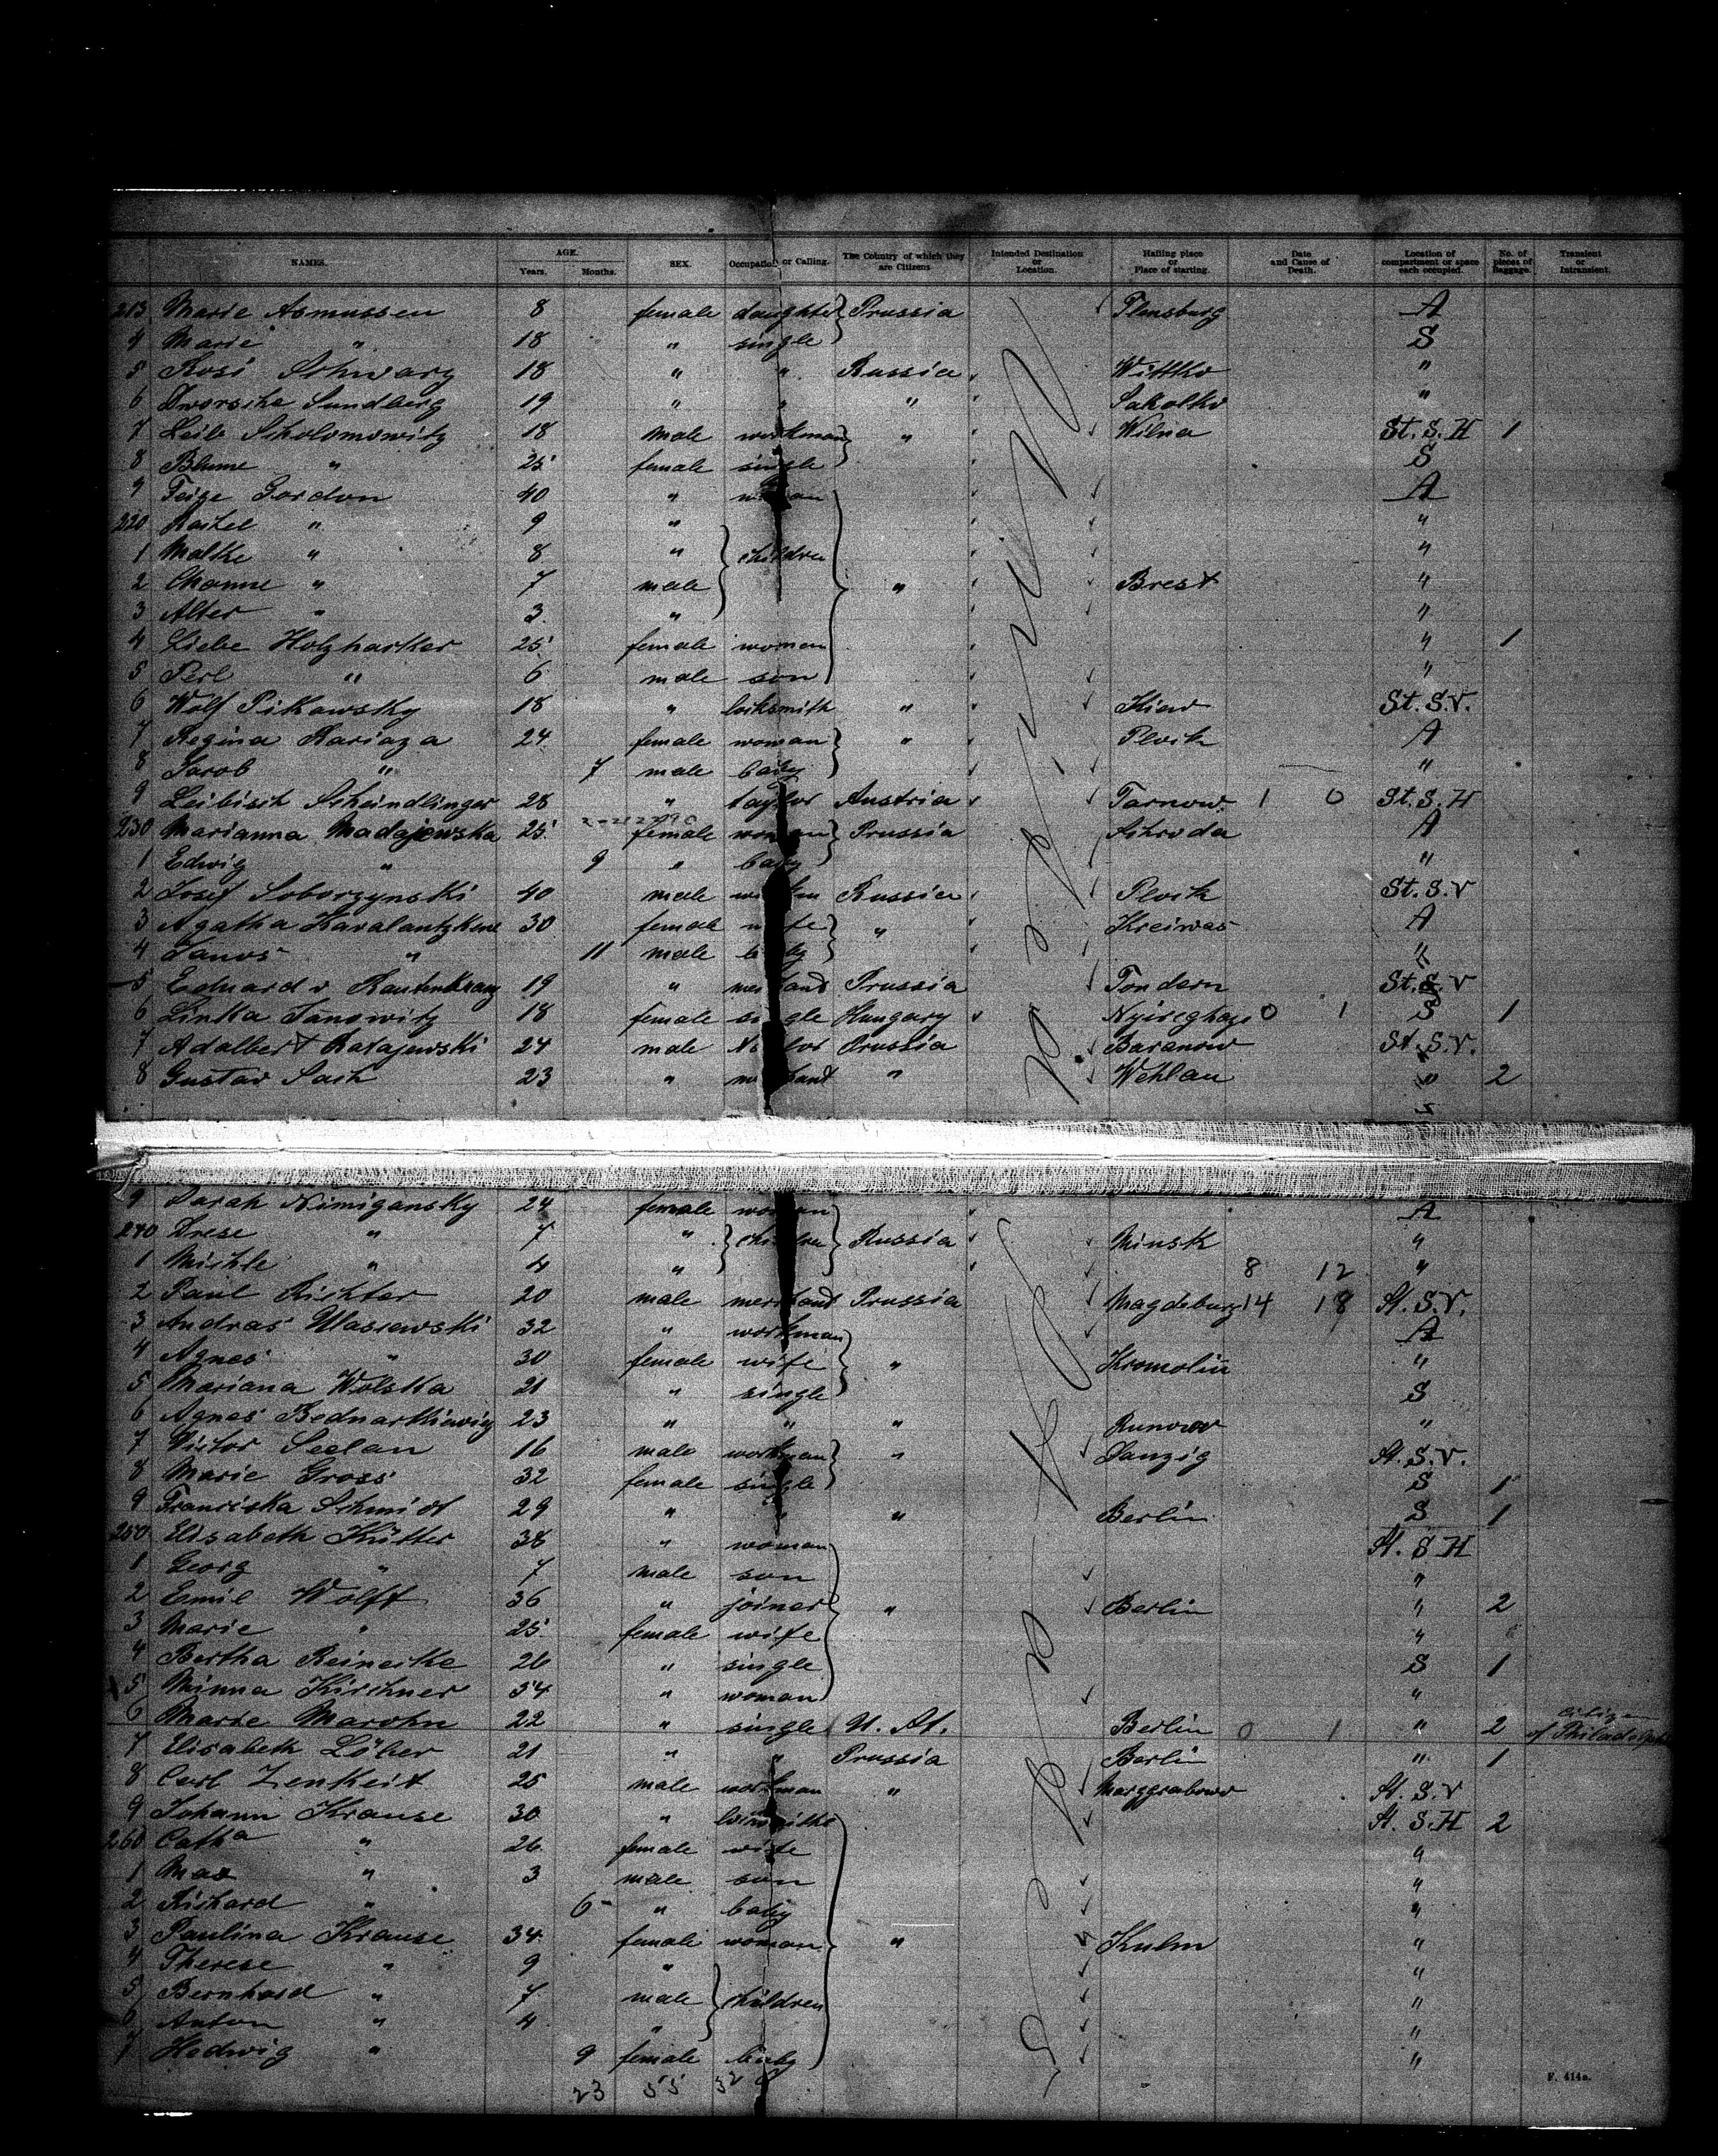 NAMES. AGE. Years. Months. SEX. Occupation or Calling. The Country of which they are Citizens Intended Destination or Location. Hailing place or Place of starting. Date and Cause of Death. Location of compartment or space each occupied. No. of pieces of Baggage. Transient or Intransient.
213 Marie Asmussen 8 female daughter Prussia Flensburg A
4 Marie " 18 " single S
5 Rosi Schwarz 18 " " Russia Wittko "
6 Dworsche Sundberg 19 " " " Sakolko "
7 Leib Scholomowitz 18 male workman " Wilna St. S. H 1
8 Blume " 25 female single S
9 Feige Gordon 40 " woman A
220 Rachel " 9 " "
1 Malke " 8 " children "
2 Channe " 7 male " Brest "
3 Alter " 3 " "
4 Liebe Holzhacker 25 female woman " 1
5 Perl " 6 male son "
6 Wolf Pikowsky 18 " locksmith " Kiew St. S. V.
7 Regina Kariaza 24 female woman " Plock A
8 Jacob " 7 male baby "
9 Leibisch Scheindlinger 28 " taylor Austria Tarnow 1 0 St. S. H
230 Marianna Madajewska 25 female woman Prussia Schroda A
1 Edwig " 9 " baby "
2 Josef Soborzynski 40 male Russia Plock St. S. V
3 Agatha 30 female wife " Kreiwas A
4 Janos " 11 male baby "
5 Eduard v. Rautenkranz 19 " merchand Prussia Tondern St. S. V
6 Linka Janowitz 18 female single Hungary 0 1 S 1
7 Adalbert Ratajewski 24 male Prussia Baranow St. S. V.
8 Gustav Sach 23 " merchand " Wehlau " 2
9 Sarah Nimigansky 24 female woman A
240 Drese " 7 " children Russia Minsk "
1 Michle " 4 " 8 12 "
2 Paul Richter 20 male merchand Prussia Magdeburg 14 18 St. S. V.
3 Andras Wasiewski 32 " workman A
4 Agnes " 30 female wife " Kromolin "
5 Mariana Wolska 21 " single S
6 Agnes Bednarkiewicz 23 " " " Runowo "
7 Victor Seelau 16 male workman " Danzig St. S. V.
8 Marie Gross 32 female single S 1
9 Franciska Schmidt 29 " " " Berlin S 1
250 Elisabeth Kütter 38 " woman St. S H
1 Georg " 7 male son "
2 Emil Wolff 36 " joiner " Berlin " 2
3 Marie " 25 female wife "
4 Bertha Reinecke 26 " single S 1
5 Minna Kirchner 54 " woman "
6 Marie Marohn 22 " single U. St. Berlin 0 1 " 2 Citizen of Philadelphia
7 Elisabeth Löber 21 " " Prussia Berlin " 1
8 Carl Zenkeit 25 male workman " Marggrabowo St. S. V
9 Johann Krause 30 " St. S. H 2
260 Catha " 26 female wife "
1 Max " 3 male son "
2 Richard " 6 " baby "
3 Paulina Krause 34 female woman " Kulm "
4 Therese " 9 " "
5 Bernhard " 7 male children "
6 Anton " 4 " "
7 Hedwig " 9 female baby "
23 55 32
F. 414a.